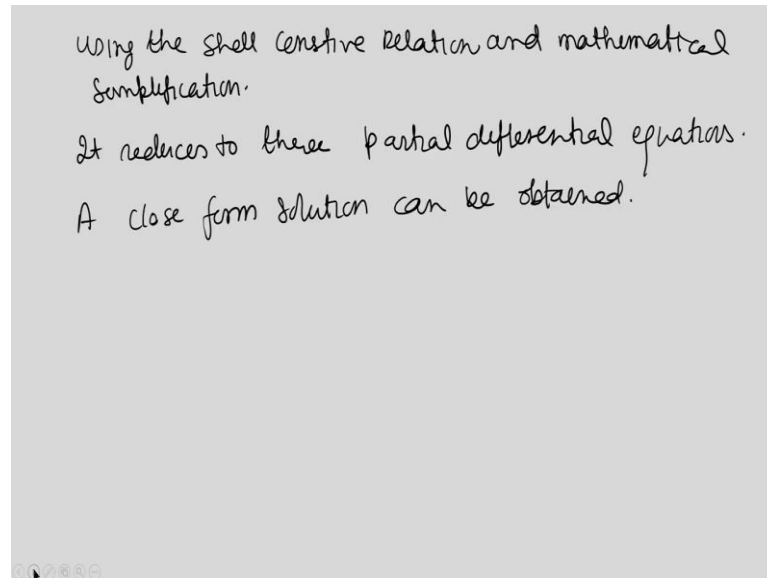 using the shell censtive relation and mathematical
simplification.
It reduces to three partial differential equations.
A close form solution can be obtained.